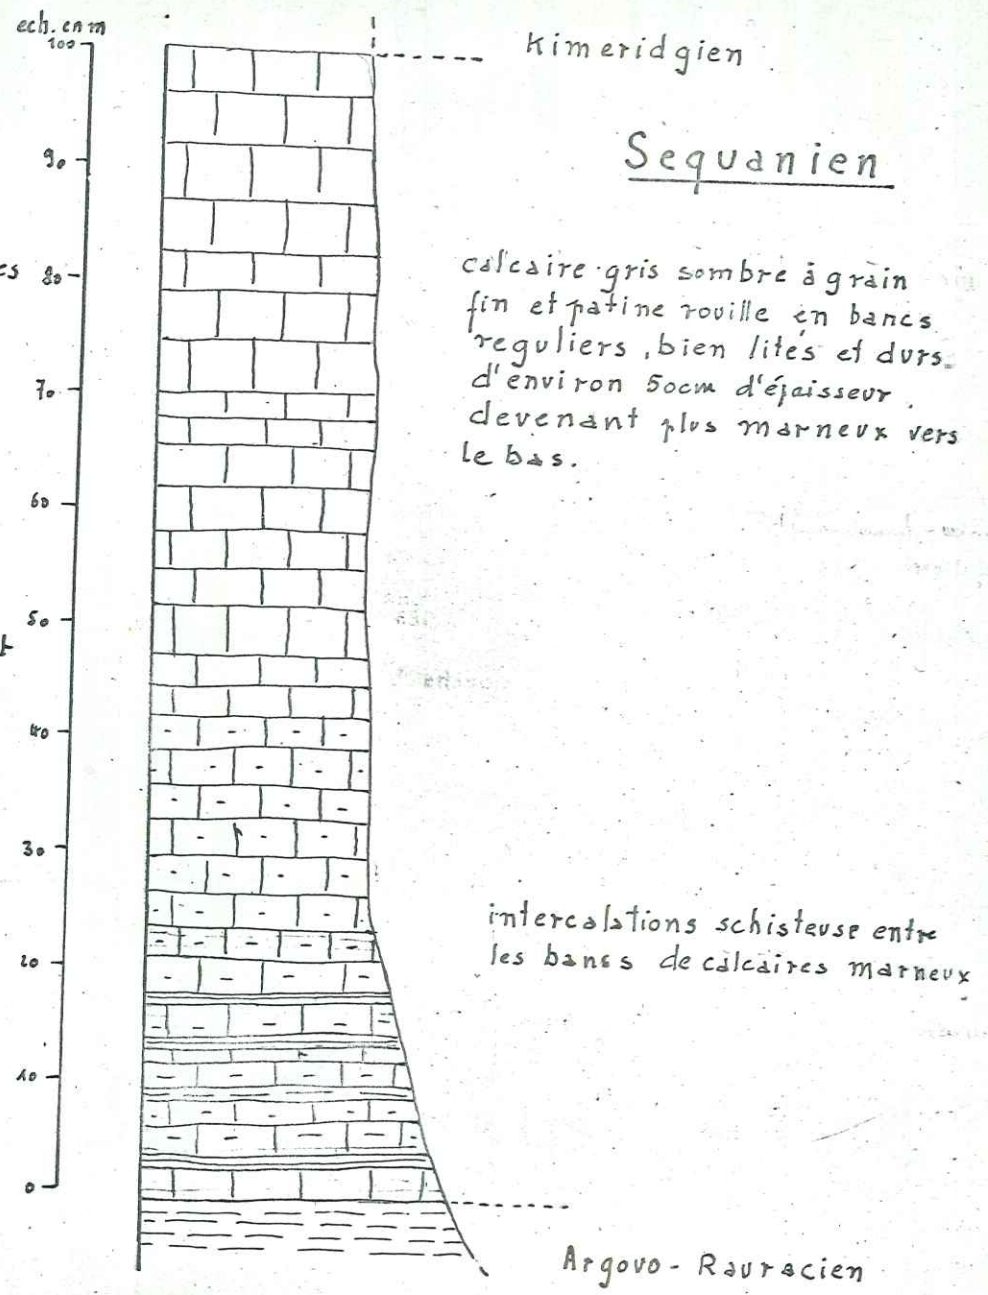 ech. en m
100
Kimeridgien
90
Sequanien
80
calcaire gris sombre à grain
fin et patine rouille en bancs
reguliers, bien lités et durs
d'environ 50cm d'épaisseur.
devenant plus marneux vers
le bas.
70
60
50
40
30
intercalations schisteuse entre
les bancs de calcaires marneux
20
10
0
Argovo - Rauracien